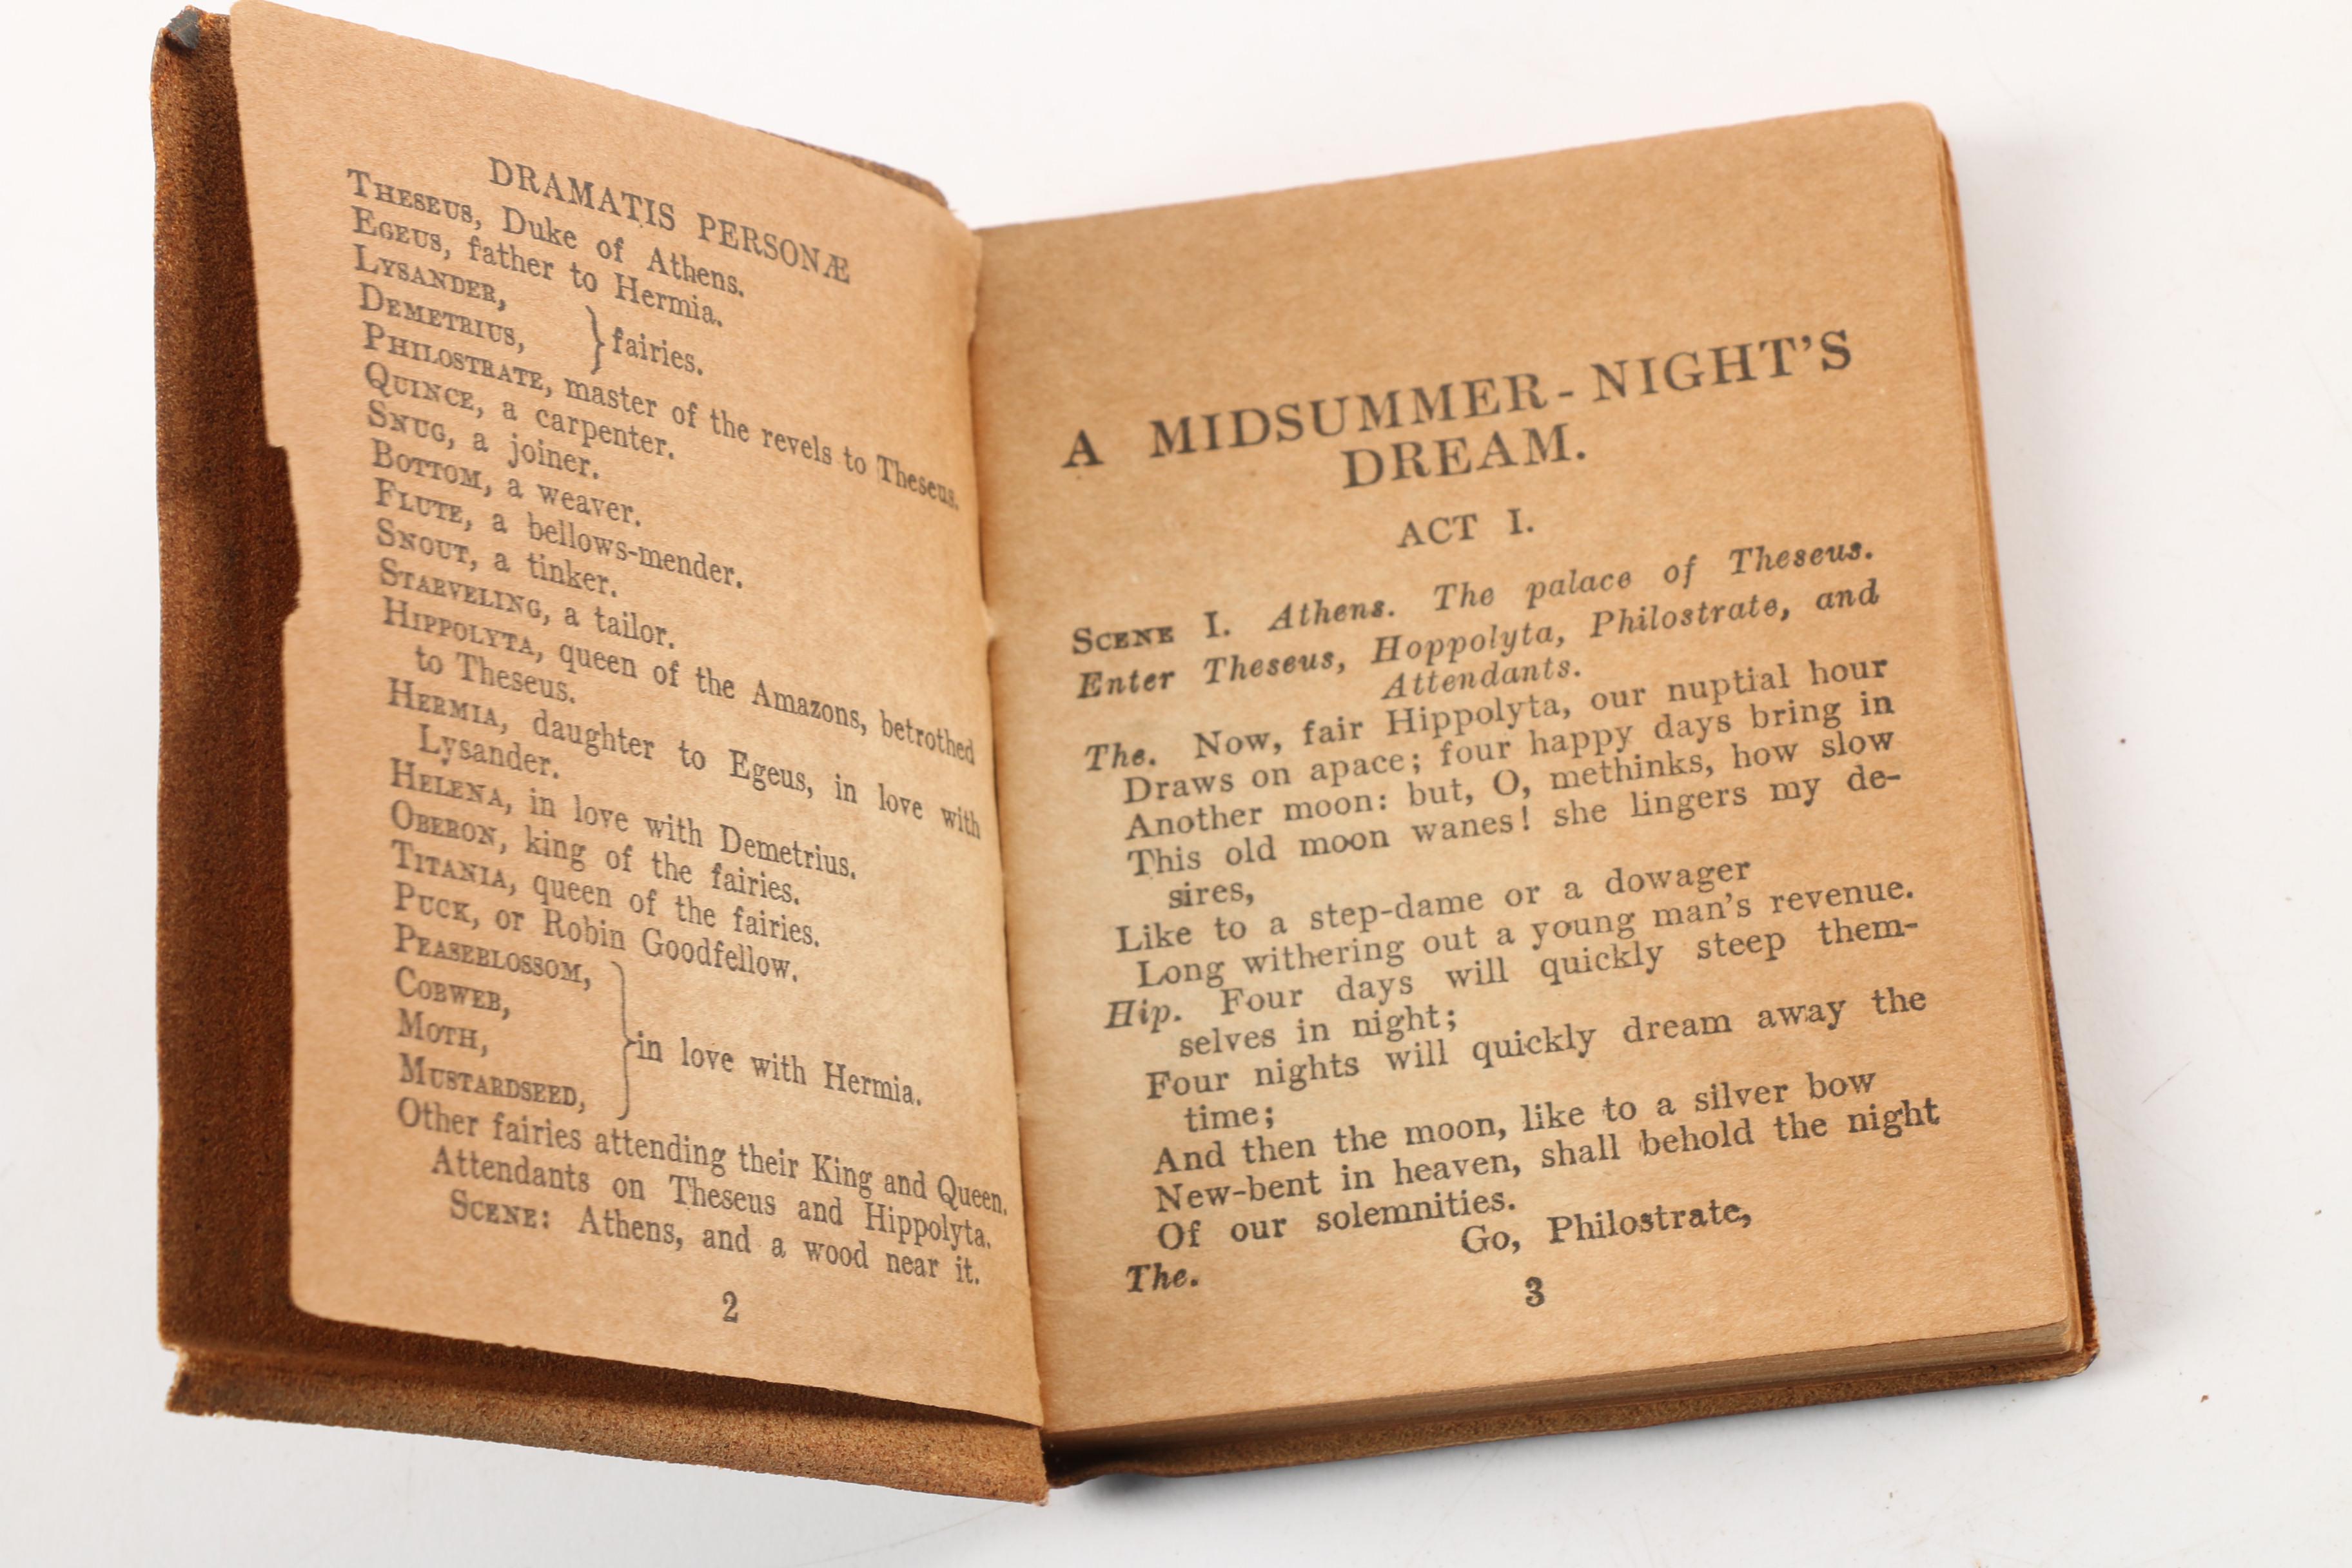 DRAMATIS PERSONÆ
THESEUS, Duke of Athens.
EGEUS, father to Hermia.
LYSANDER,
DEMETRIUS, } fairies.
PHILOSTRATE, master of the revels to Theseus.
QUINCE, a carpenter.
SNUG, a joiner.
BOTTOM, a weaver.
FLUTE, a bellows-mender.
SNOUT, a tinker.
STARVELING, a tailor.
HIPPOLYTA, queen of the Amazons, betrothed
to Theseus.
HERMIA, daughter to Egeus, in love with
Lysander.
HELENA, in love with Demetrius.
OBERON, king of the fairies.
TITANIA, queen of the fairies.
PUCK, or Robin Goodfellow.
PEASEBLOSSOM,
COBWEB,
MOTH, } in love with Hermia.
MUSTARDSEED,
Other fairies attending their King and Queen.
Attendants on Theseus and Hippolyta.
SCENE: Athens, and a wood near it.
2
A MIDSUMMER-NIGHT'S
DREAM.
ACT I.
SCENE I. Athens. The palace of Theseus.
Enter Theseus, Hoppolyta, Philostrate, and
Attendants.
The. Now, fair Hippolyta, our nuptial hour
Draws on apace; four happy days bring in
Another moon: but, O, methinks, how slow
This old moon wanes! she lingers my de-
sires,
Like to a step-dame or a dowager
Long withering out a young man's revenue.
Hip. Four days will quickly steep them-
selves in night;
Four nights will quickly dream away the
time;
And then the moon, like to a silver bow
New-bent in heaven, shall behold the night
Of our solemnities.
The. Go, Philostrate,
3